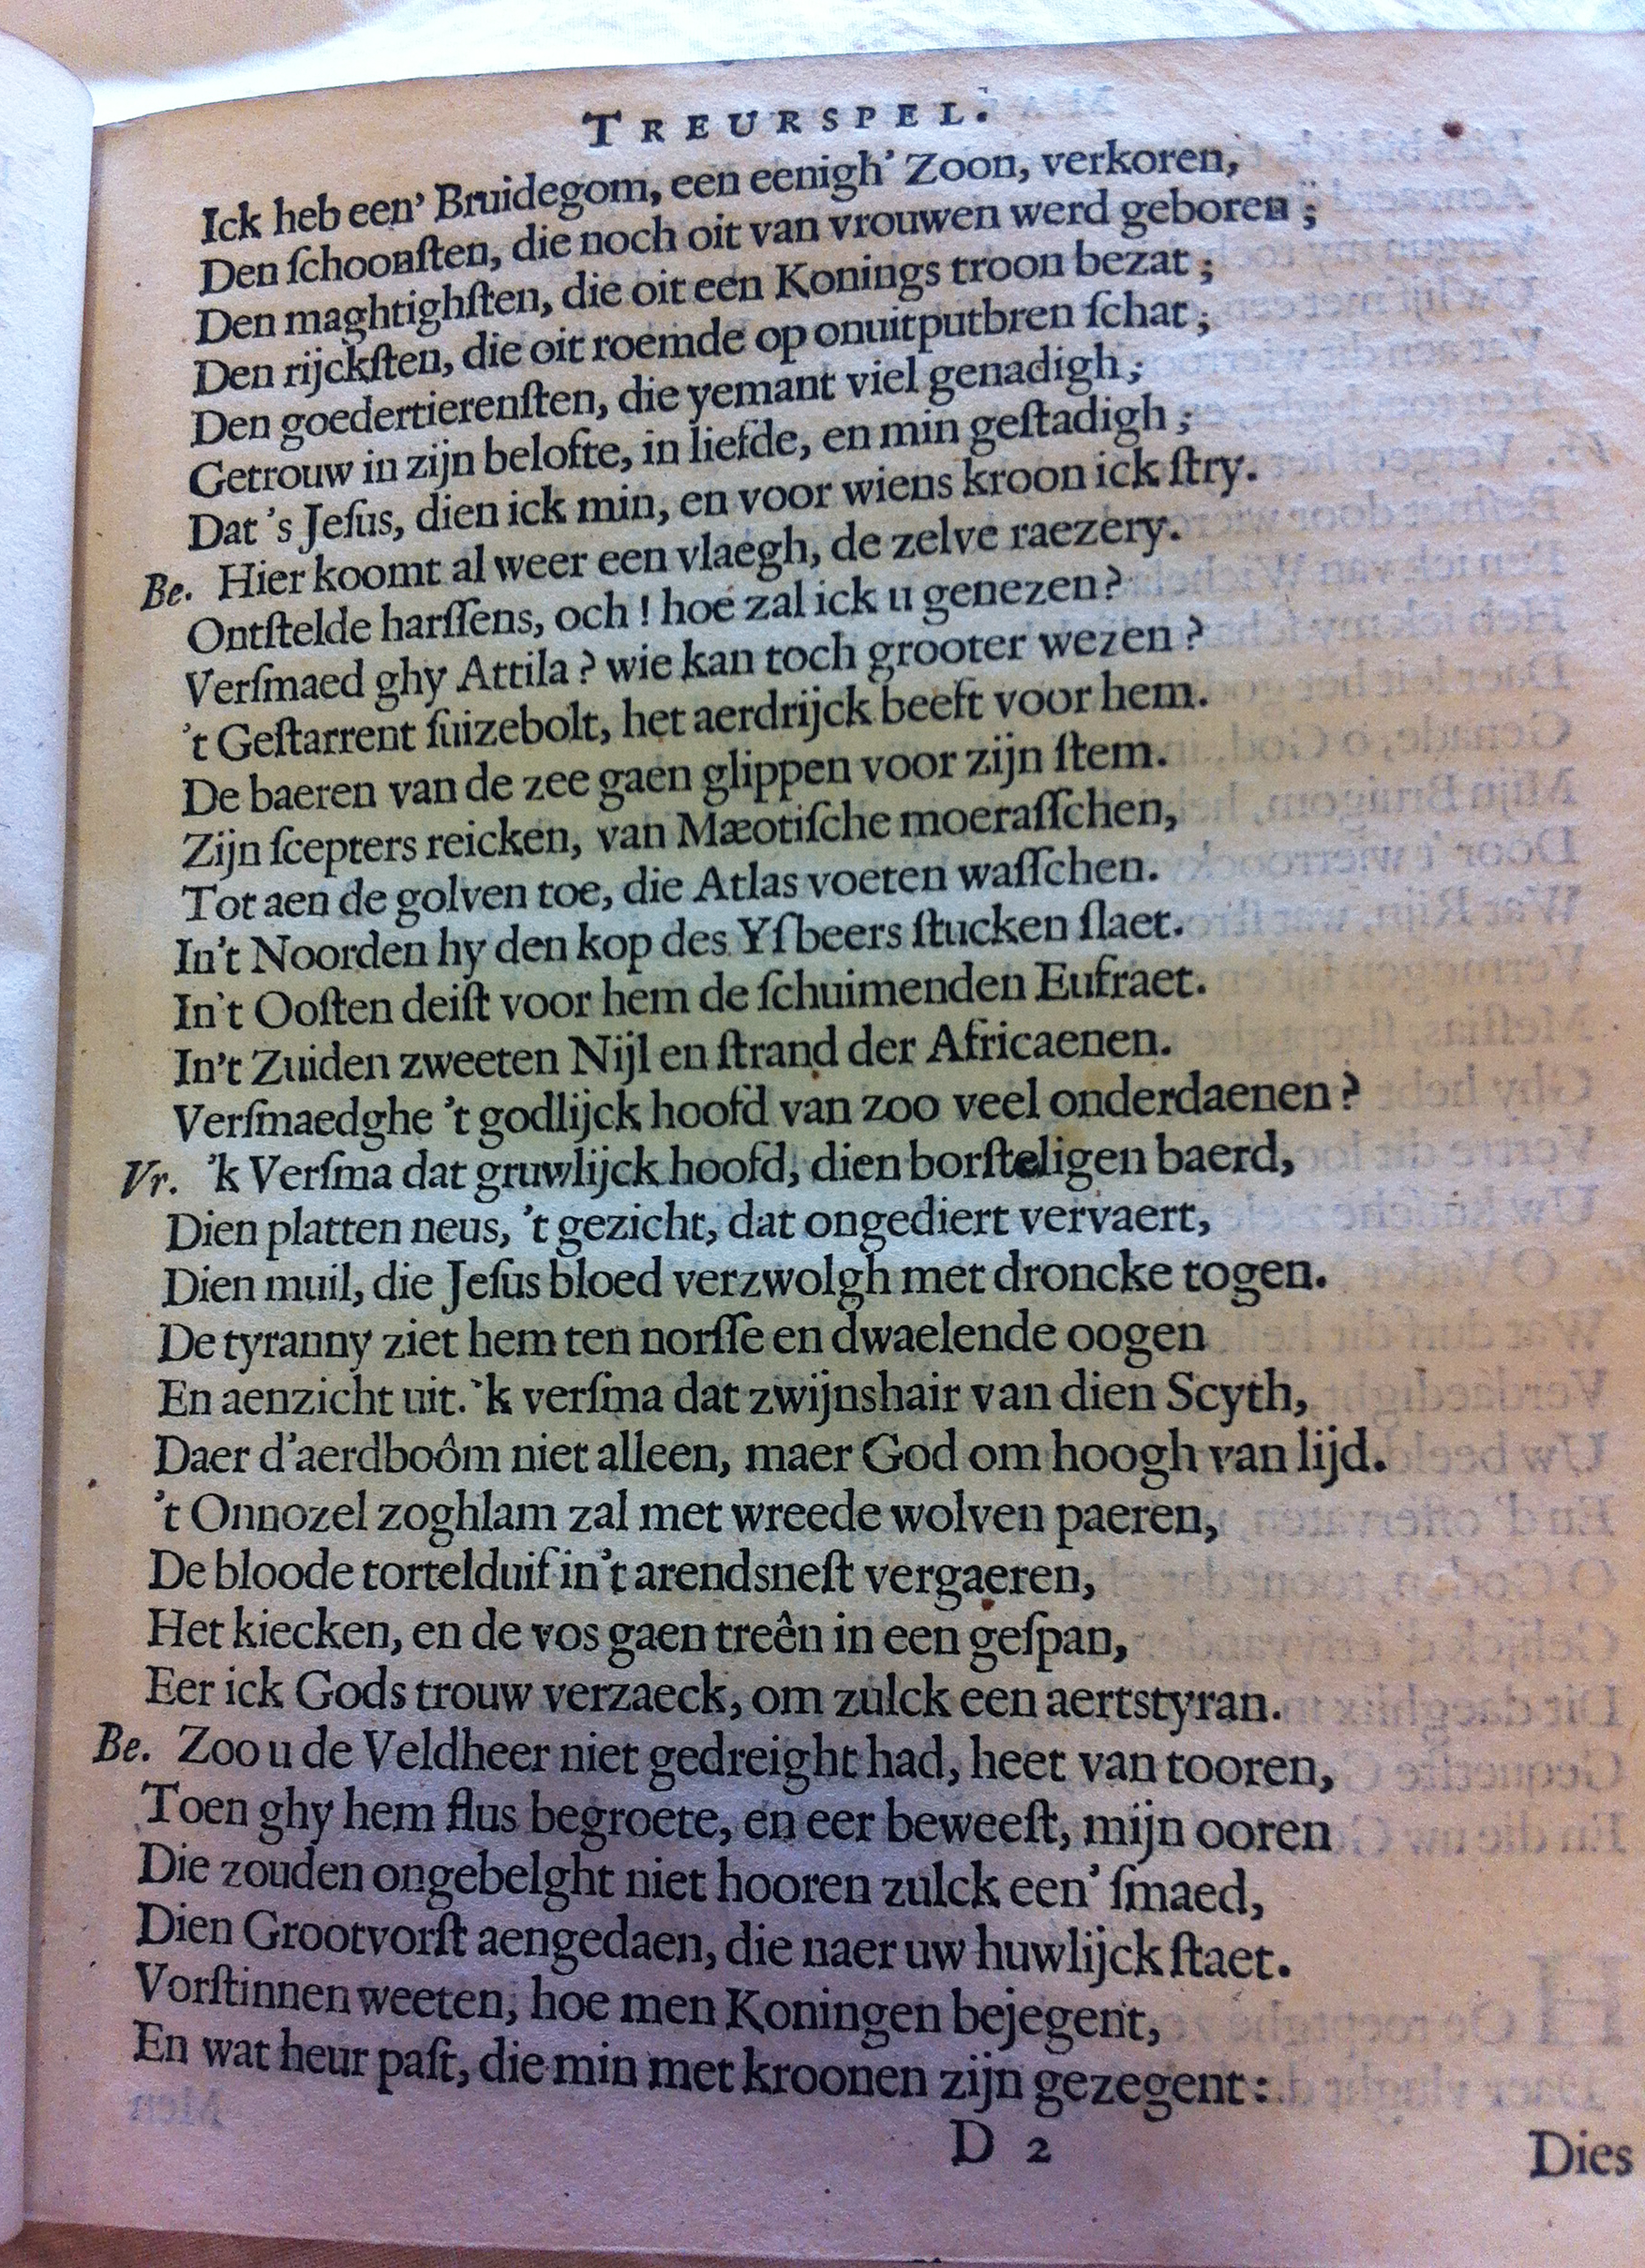 TREURSPEL.
Ick heb een’ Bruidegom, een eenigh’ Zoon, verkoren,
Den ſchoonſten, die noch oit van vrouwen werd geboren;
Den maghtighſten, die oit een Konings troon bezat;
Den rijckſten, die oit roemde op onuitputbren ſchat;
Den goedertierenſten, die yemant viel genadigh;
Getrouw in zijn belofte, in liefde, en min geſtadigh;
Dat ’s Jeſus, dien ick min, en voor wiens kroon ick ſtry.
Be. Hier koomt al weer een vlaegh, de zelve raezery.
Ontſtelde harſſens, och! hoe zal ick u genezen?
Verſmaed ghy Attila? wie kan toch grooter wezen?
’t Geſtarrent ſuizebolt, het aerdrijck beeft voor hem.
De baeren van de zee gaen glippen voor zijn ſtem.
Zijn ſcepters reicken, van Mæotiſche moeraſſchen,
Tot aen de golven toe, die Atlas voeten waſſchen.
In’t Noorden hy den kop des Yſbeers ſtucken ſlaet.
In’t Ooſten deiſt voor hem de ſchuimenden Eufraet.
In’t Zuiden zweeten Nijl en ſtrand der Africaenen.
Verſmaedghe ’t godlijck hoofd van zoo veel onderdaenen?
Vr. ’k Verſma dat gruwlijck hoofd, dien borſteligen baerd,
Dien platten neus, ’t gezicht, dat ongediert vervaert,
Dien muil, die Jeſus bloed verzwolgh met droncke togen.
De tyranny ziet hem ten norſſe en dwaelende oogen
En aenzicht uit. ’k verſma dat zwijnshair van dien Scyth,
Daer d’aerdboôm niet alleen, maer God om hoogh van lijd.
’t Onnozel zoghlam zal met wreede wolven paeren,
De bloode tortelduif in’t arendsneſt vergaeren,
Het kiecken, en de vos gaen treên in een geſpan,
Eer ick Gods trouw verzaeck, om zulck een aertstyran.
Be. Zoo u de Veldheer niet gedreight had, heet van tooren,
Toen ghy hem flus begroete, en eer beweeſt, mijn ooren
Die zouden ongebelght niet hooren zulck een’ ſmaed,
Dien Grootvorſt aengedaen, die naer uw huwlijck ſtaet.
Vorſtinnen weeten, hoe men Koningen bejegent,
En wat heur paſt, die min met kroonen zijn gezegent:
D 2
Dies